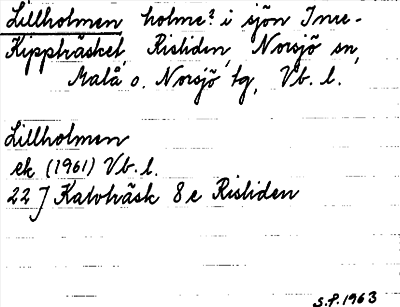 Lillholmen, holme? i sjön Inre-
Kippträsket, Risliden, Norsjö sn,
Malå o. Norsjö tg, Vb. l.
Lillholmen
ek (1961) Vb. l.
22 J Katoträsk 8 e Risliden
S.P. 1963